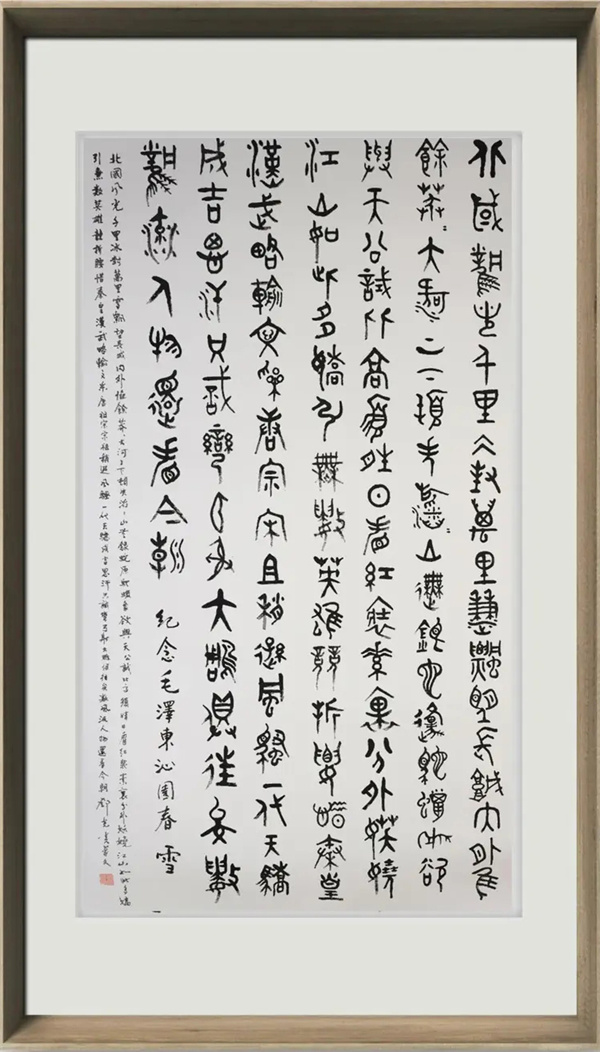 北國風光千里冰封萬里雪飄望長城內外惟
餘莽〻大河上下頓失滔〻山舞銀蛇原馳蠟象欲
與天公試比高須晴日看紅裝素裹分外妖嬈
江山如此多嬌引無數英雄競折腰惜秦皇
漢武略輸文采唐宗宋祖稍遜風騷一代天驕
成吉思汗只識彎弓射大鵰俱往矣數
風流人物還看今朝 紀念毛澤東沁園春 雪
北國風光千里冰封萬里雪飄望長城內外惟餘莽〻大河上下頓失滔〻山舞銀蛇原馳蠟象欲與天公試比高須晴日看紅裝素裹分外妖嬈江山如此多嬌
引無數英雄競折腰惜秦皇漢武略輸文采唐宗宋祖稍遜風騷一代天驕成吉思汗只識彎弓射大鵰俱往矣數風流人物還看今朝 鄧